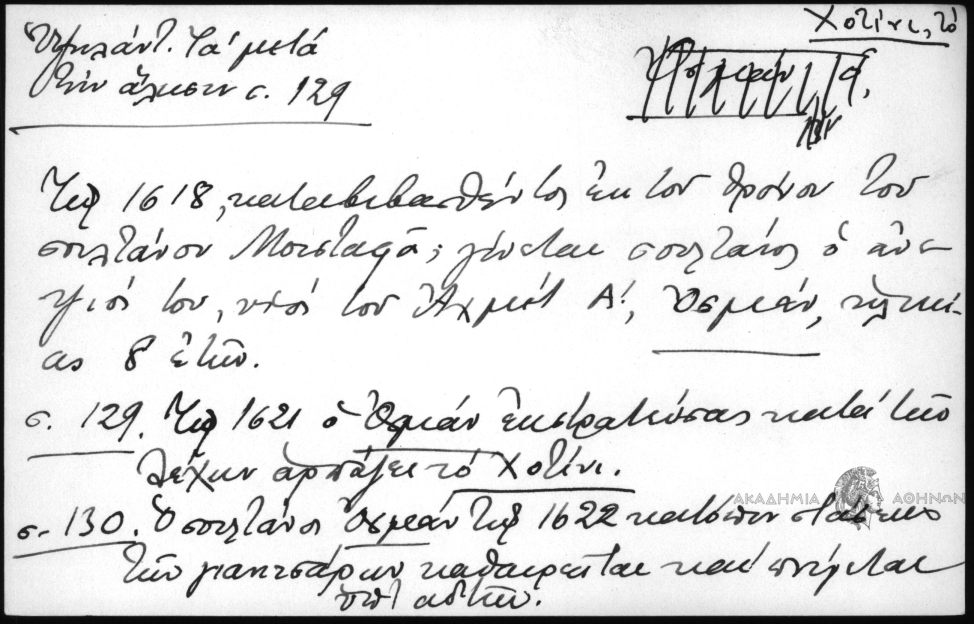 Χοτίνι, τό
Ὑψηλάντ. Τά μετά
τήν ἅλωσιν σ. 129
Τῷ 1618, καταβιβασθέντος ἐκ τοῦ θρόνου τοῦ
σουλτάνου Μουσταφᾶ, γίνεται σουλτάνος ὁ ἀνε-
ψιός του, υἱός τοῦ Ἀχμέτ Α!, Ὀσμάν, ἡλικί-
ας 8 ἐτῶν.
σ. 129. Τῷ 1621 ὁ Ὀσμάν ἐκστρατεύσας κατά τῶν
Λέχων ἁρπάζει τό Χοτίνι.
ΑΚΑΔΗΜΙΑ ΑΘΗΝΩΝ
σ. 130. Ὁ σουλτάνος Ὀσμάν τῷ 1622 κατόπιν στάσεως
τῶν γιανιτσάρων καθαιρεῖται καί πνίγεται
ὑπ' αὐτῶν.